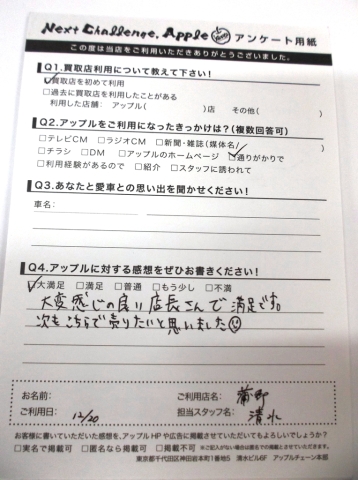 Next Challenge. Apple アンケート用紙
この度は当店をご利用いただきありがとうございました。
Q1.買取店利用について教えて下さい!
☑買取店を初めて利用
□過去に買取店を利用したことがある
利用した店舗: アップル( )店 その他( )
Q2.アップルをご利用になったきっかけは?(複数回答可)
□テレビCM □ラジオCM □新聞・雑誌(媒体名 )
□チラシ □DM □アップルのホームページ ☑通りがかりで
□利用経験があるので □紹介 □スタッフに誘われて
Q3.あなたと愛車との思い出を聞かせください!
車名:
Q4.アップルに対する感想をぜひお書きください!
☑大満足 □満足 □普通 □もう少し □不満
大変感じの良い店長さんで満足です。
次もこちらで売りたいと思いました☺
お名前: ご利用店名: 蒲郡
ご利用日: 12/20 担当スタッフ名: 清水
お客様に書いていただいた感想を、アップルHPや広告に掲載させていただいてもよろしいでしょうか?
□実名で掲載可 □匿名なら掲載可 □掲載不可 ※ご記入がない場合は匿名での掲載とさせていただきます。
東京都千代田区神田岩本町1番地5 清水ビル6F アップルチェーン本部